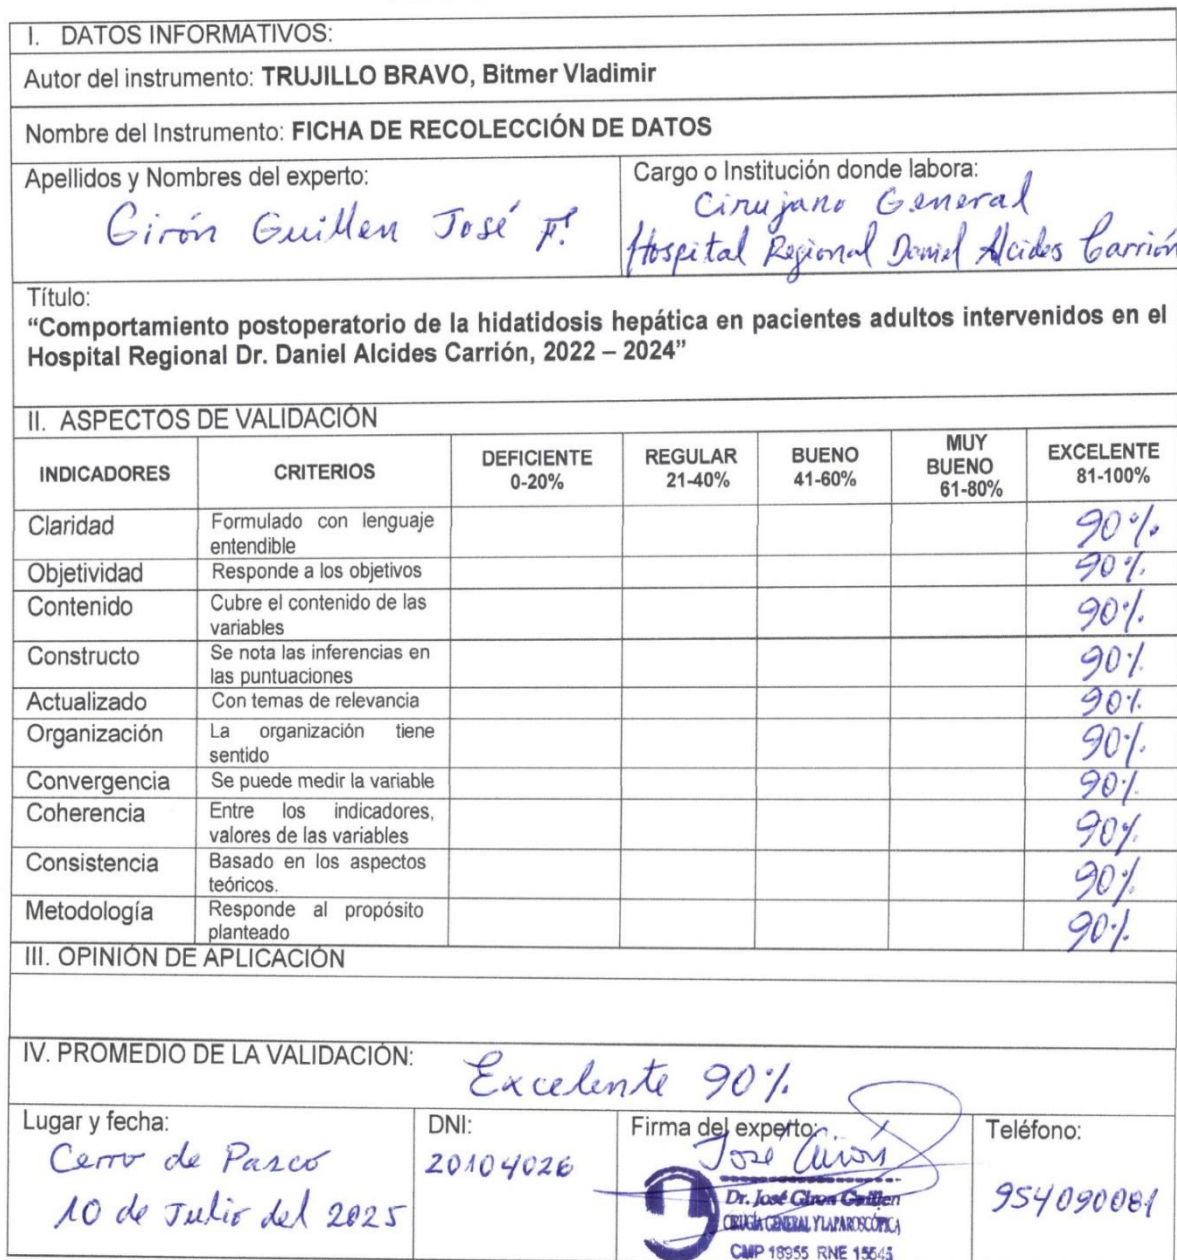 I. DATOS INFORMATIVOS:
Autor del instrumento: TRUJILLO BRAVO, Bitmer Vladimir
Nombre del Instrumento: FICHA DE RECOLECCIÓN DE DATOS
Apellidos y Nombres del experto:
Girón Guillen José F.
Cargo o Institución donde labora:
Cirujano General
Hospital Regional Daniel Alcides Carrión
Título:
“Comportamiento postoperatorio de la hidatidosis hepática en pacientes adultos intervenidos en el
Hospital Regional Dr. Daniel Alcides Carrión, 2022 – 2024”
II. ASPECTOS DE VALIDACIÓN
INDICADORES CRITERIOS DEFICIENTE 0-20% REGULAR 21-40% BUENO 41-60% MUY BUENO 61-80% EXCELENTE 81-100%
Claridad Formulado con lenguaje entendible 90%
Objetividad Responde a los objetivos 90%
Contenido Cubre el contenido de las variables 90%
Constructo Se nota las inferencias en las puntuaciones 90%
Actualizado Con temas de relevancia 90%
Organización La organización tiene sentido 90%
Convergencia Se puede medir la variable 90%
Coherencia Entre los indicadores, valores de las variables 90%
Consistencia Basado en los aspectos teóricos. 90%
Metodología Responde al propósito planteado 90%
III. OPINIÓN DE APLICACIÓN
IV. PROMEDIO DE LA VALIDACIÓN:
Excelente 90%
Lugar y fecha:
Cerro de Pasco
10 de Julio del 2025
DNI:
20104026
Firma del experto:
José Girón
Dr. José Giron Guillen
CIRUGÍA GENERAL Y LAPAROSCÓPICA
CMP 18955 RNE 15545
Teléfono:
954090081